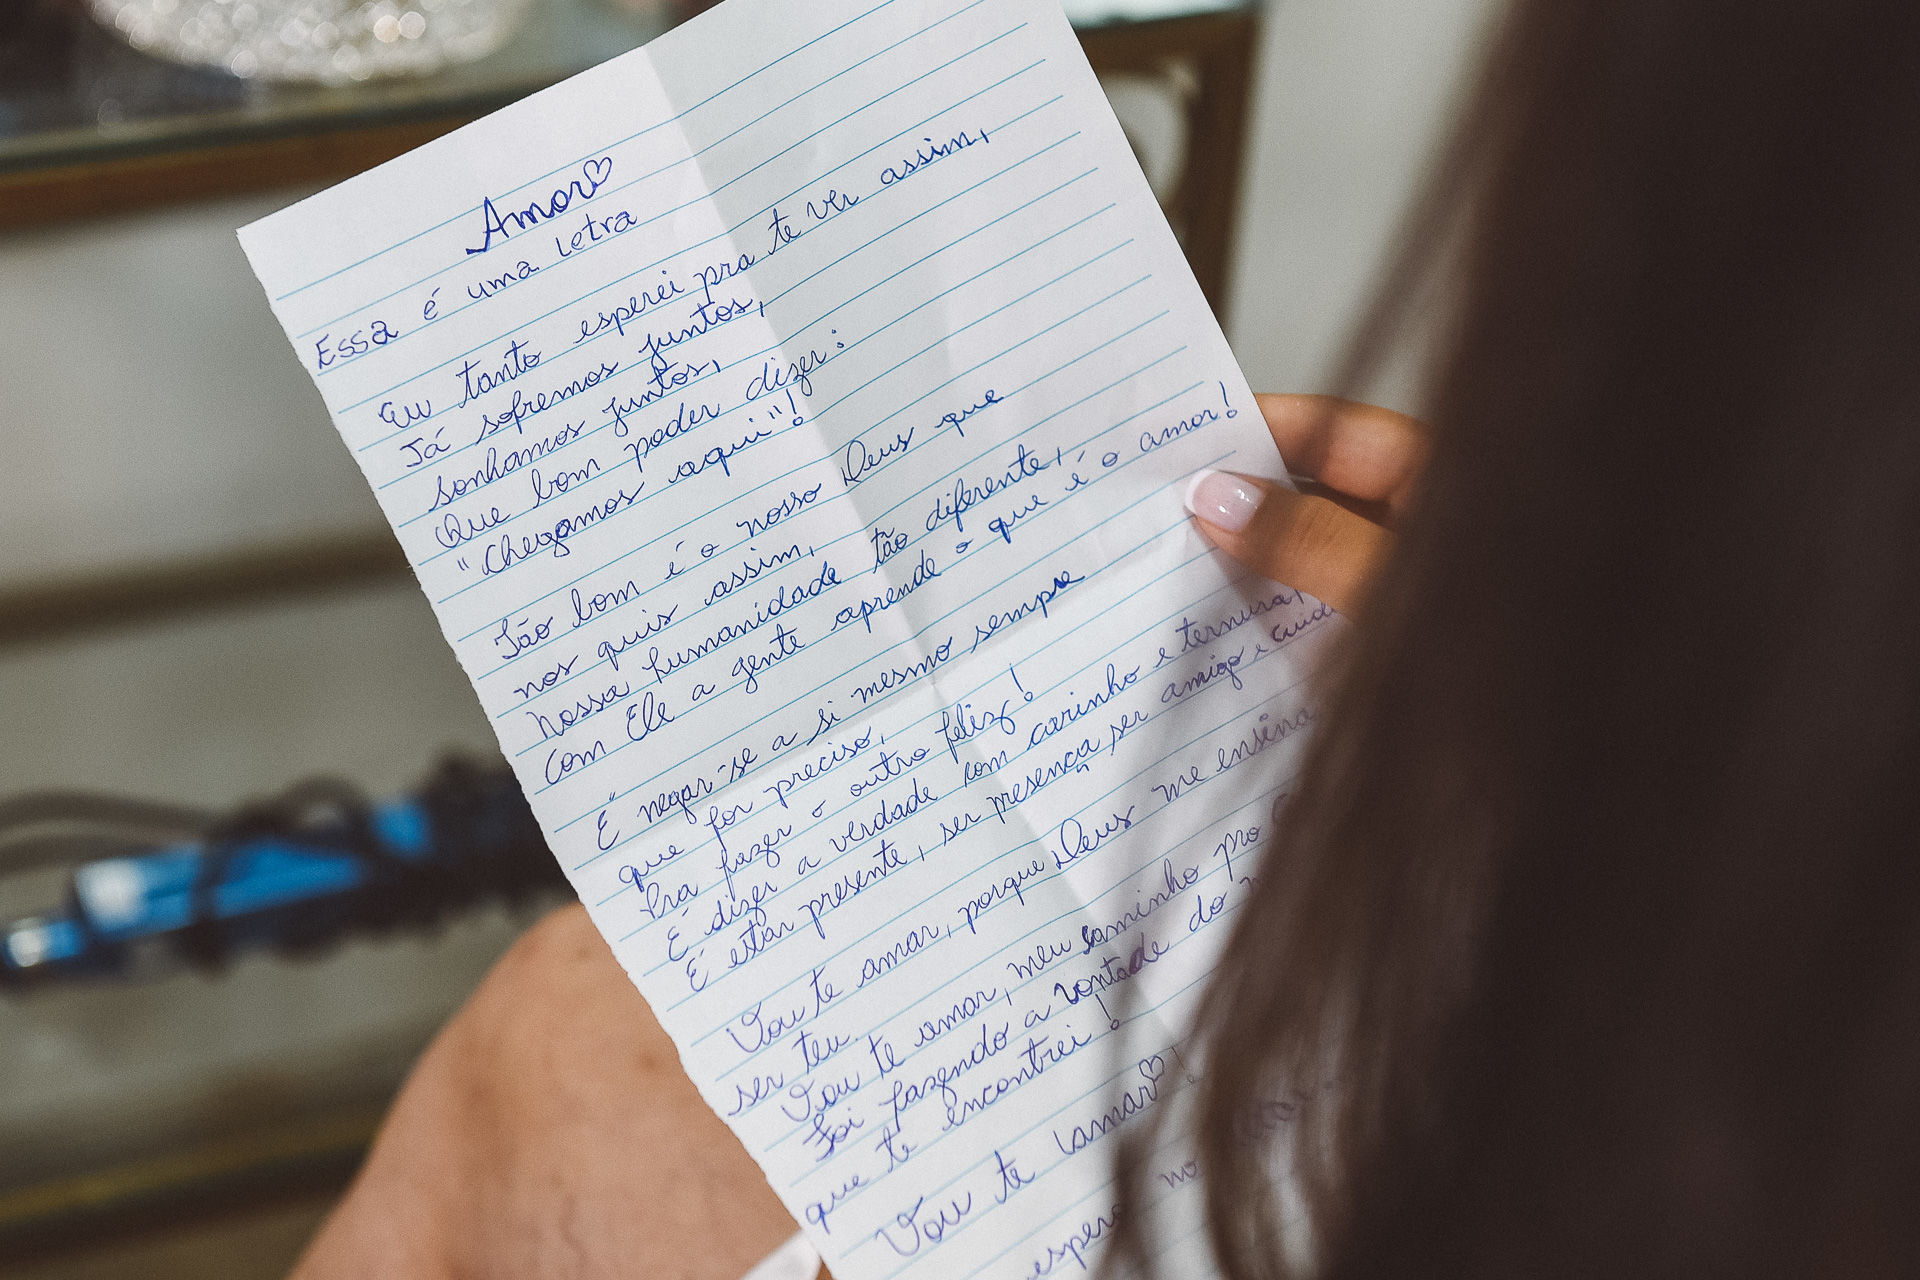 Amor♡
Essa é uma letra
Eu tanto esperei pra te ver assim,
Já sofremos juntos,
sonhamos juntos,
Que bom poder dizer:
"Chegamos aqui"!
Tão bom é o nosso Deus que
nos quis assim,
Nossa humanidade tão diferente,
Com Ele a gente aprende o que é o amor!
É negar-se a si mesmo sempre
que for preciso,
Pra fazer o outro feliz!
É dizer a verdade com carinho e ternura,
É estar presente, ser presença ser amigo e
Vou te amar, porque Deus me ensina
ser teu.
Vou te amar, meu caminho pro
Foi fazendo a vontade do
que te encontrei!
Vou te amar♡!
no